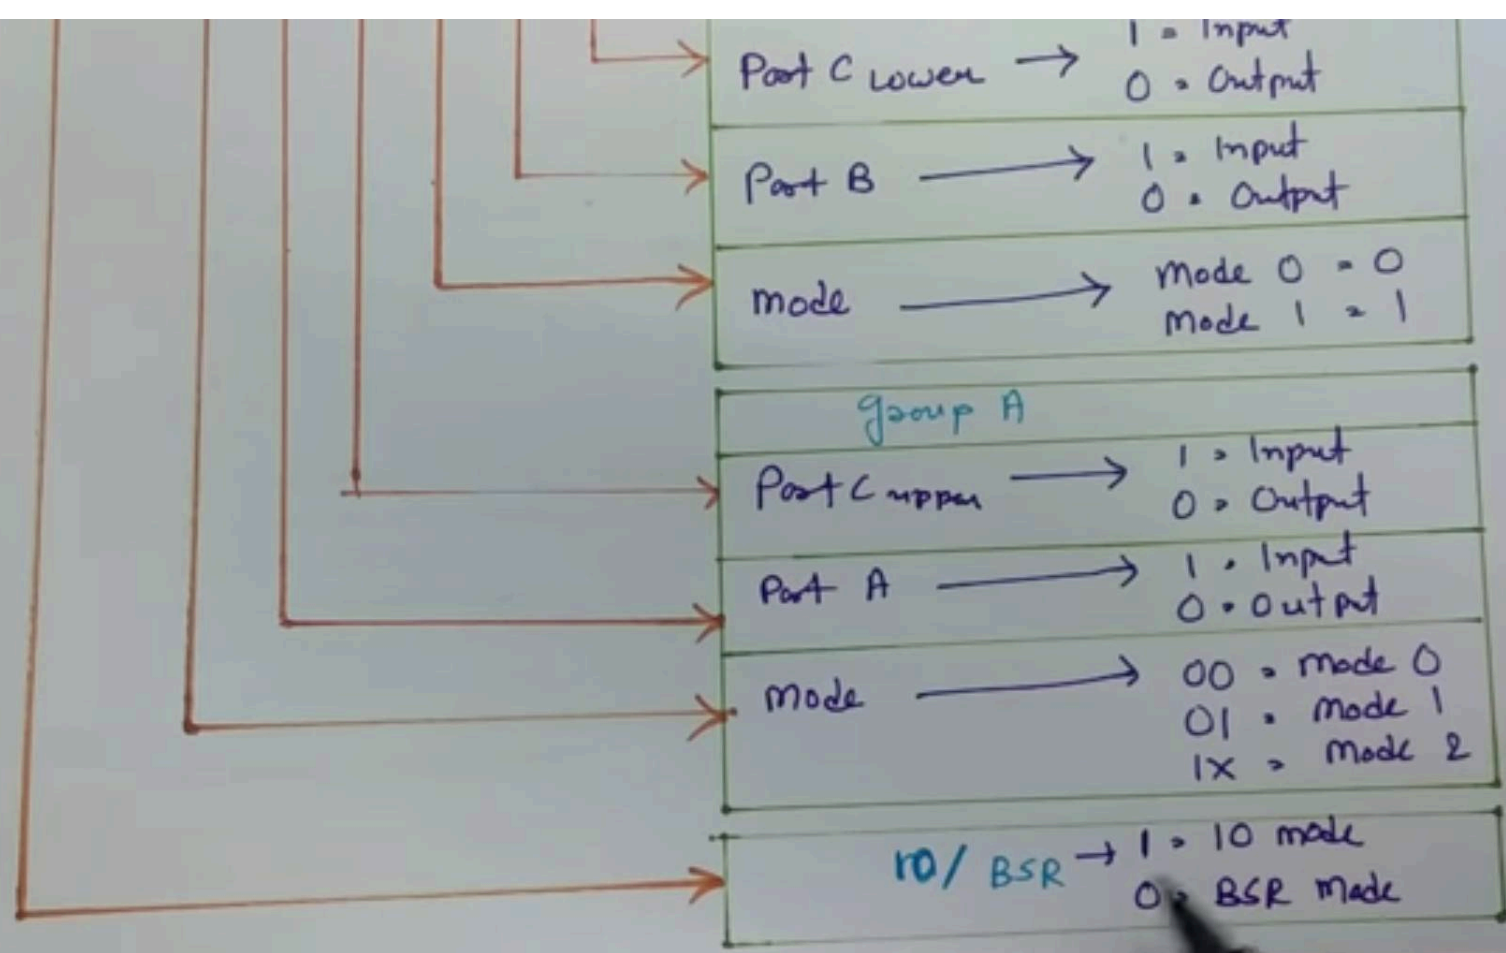 1 = Input
Port C Lower → 0 = Output
Port B → 1 = Input
0 = Output
mode → Mode 0 = 0
Mode 1 = 1
Group A
Port C upper → 1 = Input
0 = Output
Port A → 1 = Input
0 = Output
Mode → 00 = Mode 0
01 = Mode 1
1X = Mode 2
IO/ BSR → 1 = IO mode
0 = BSR Mode